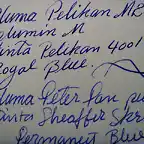 Pluma Pelikan M2
Plumin M
Tinta Pelikan 4001
Royal Blue.
Pluma Peter Pan
Tinta Sheaffer Skr
Permanent Blue